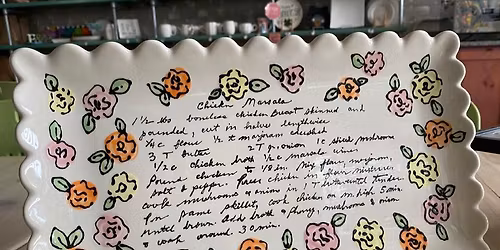 Chicken Marsala
1 1/2 lbs boneless chicken breast skinned and
pounded, cut in halves lengthwise
1/4 c flour 1/2 t marjoram crushed
3 T butter 2 T g. onion 1 c sliced mushrooms
1/2 c chicken broth 1/2 c marsala wine
Pound chicken to 1/8 in. Mix flour, marjoram,
salt & pepper. Toss chicken in flour mixture.
Cook mushrooms & onion in 1 T butter until tender
In same skillet, cook chicken on med high 5 min.
until brown. Add broth & sherry, mushrooms & onion
& cook around 3 min.